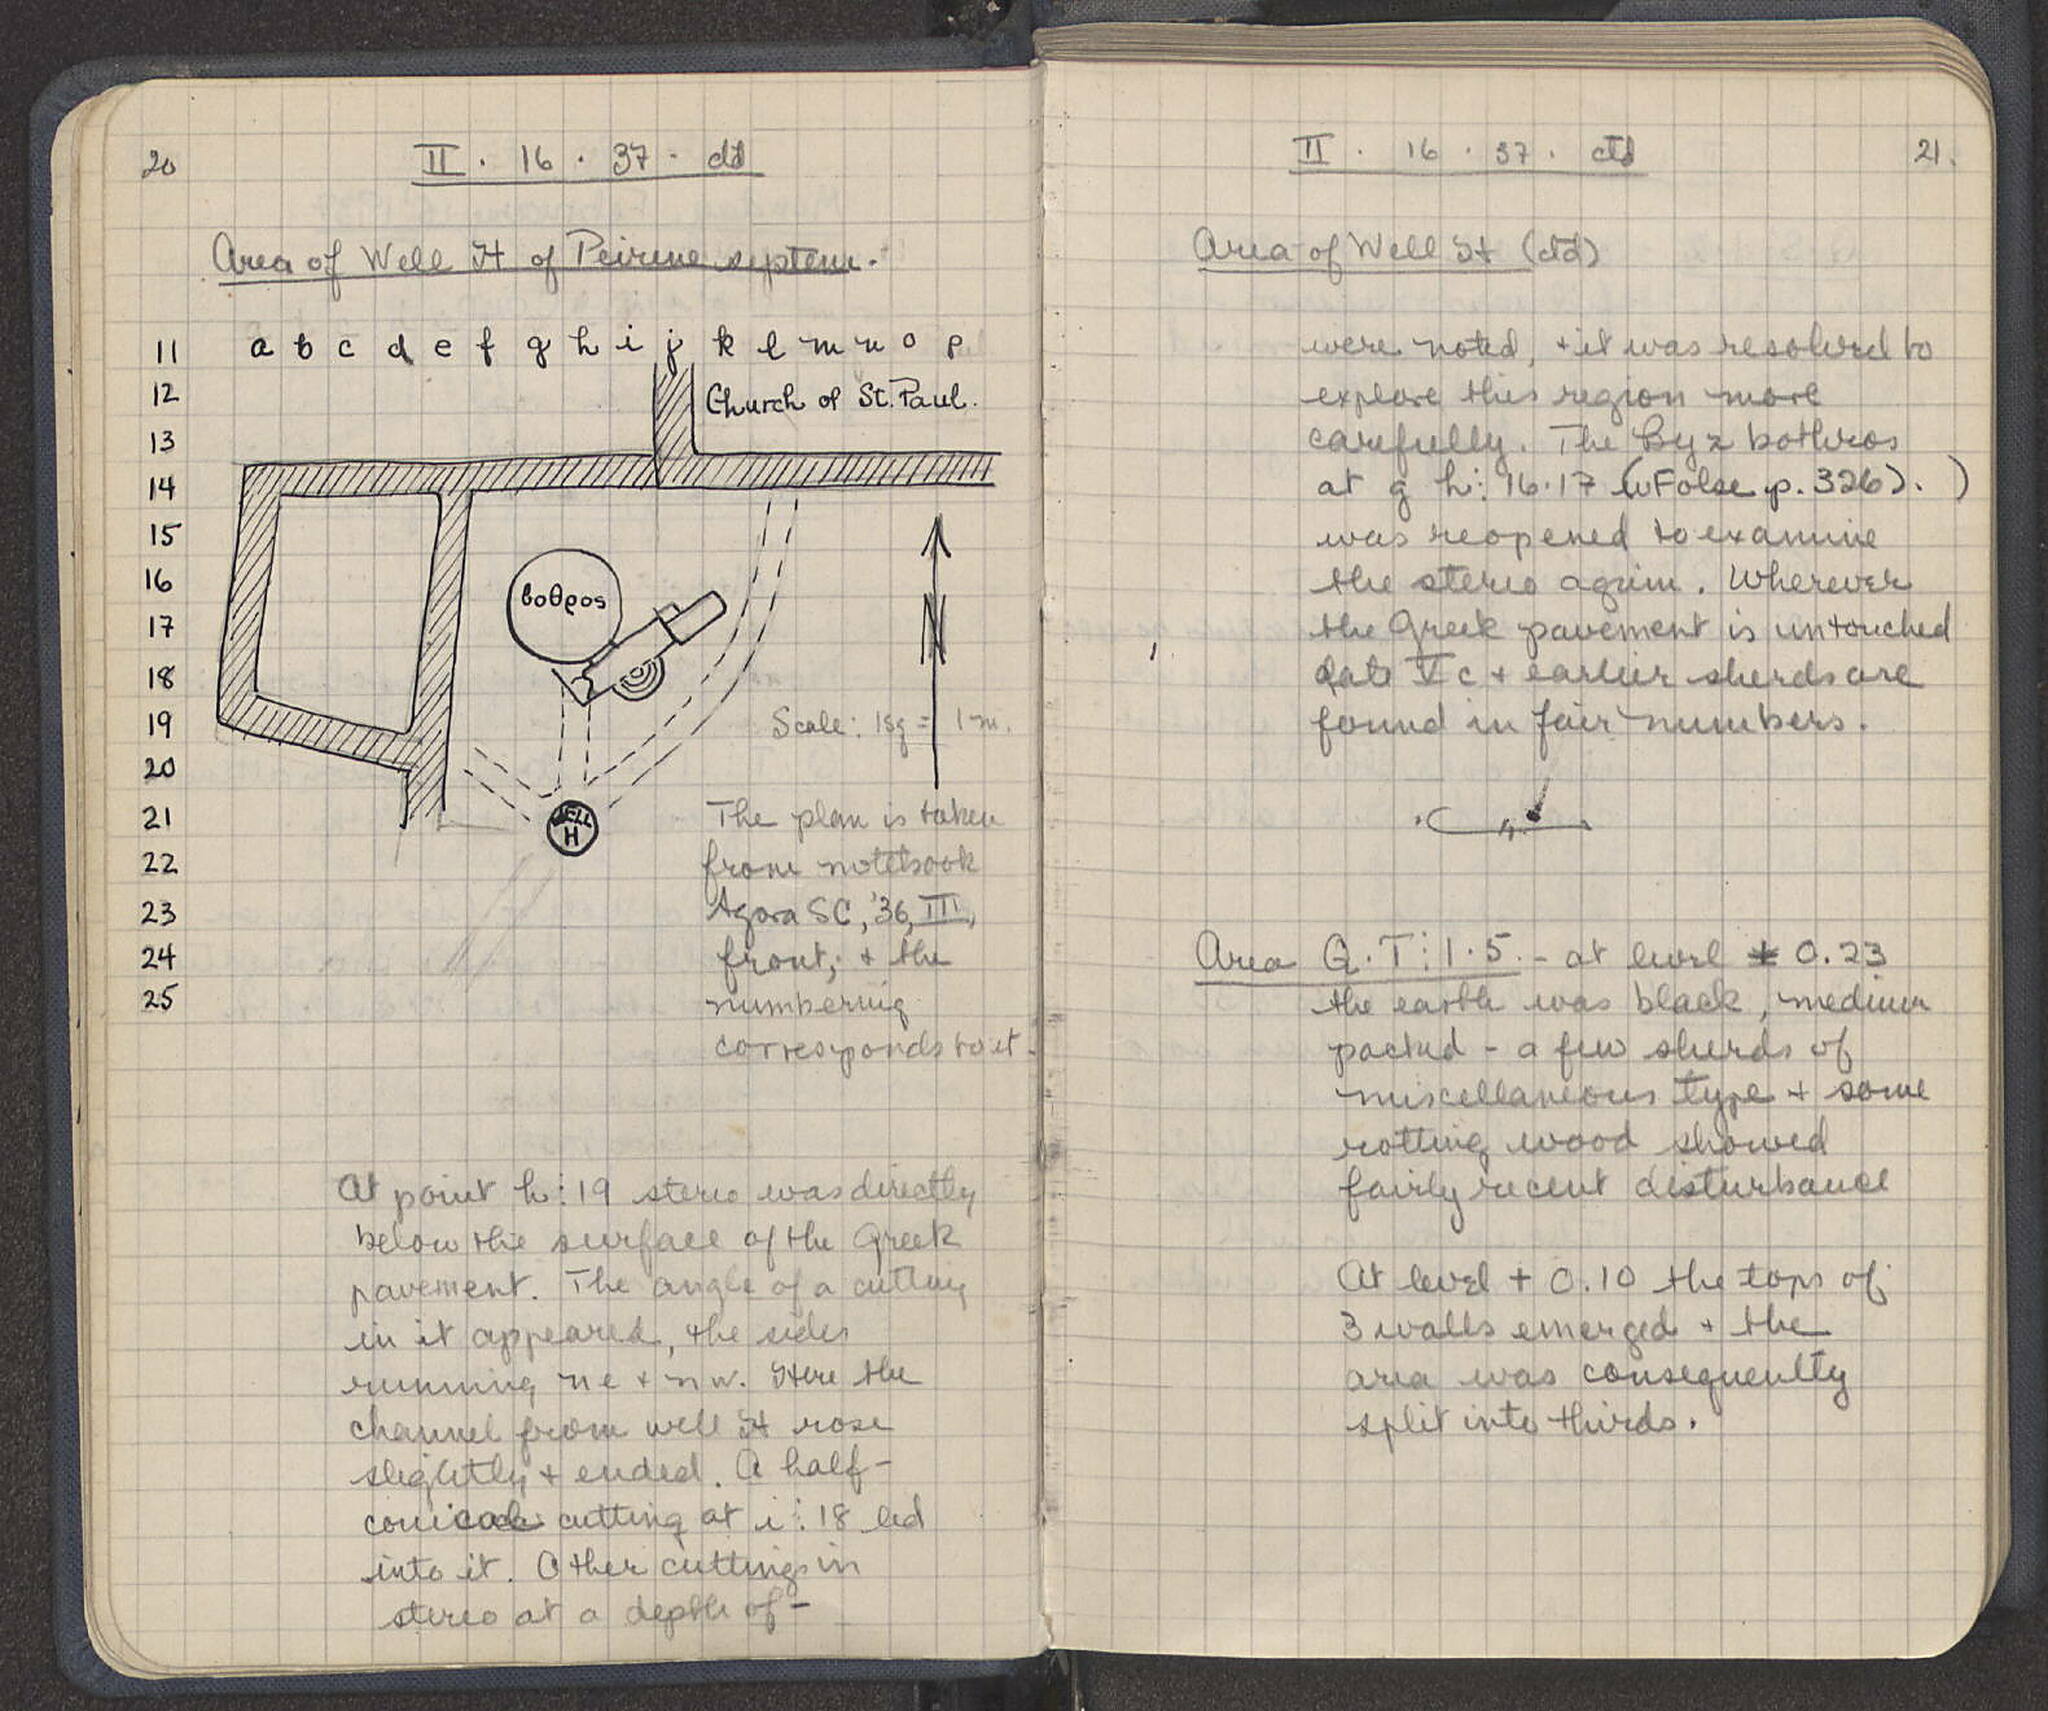 20
II . 16 . 37 . ctd
Area of Well H of Peirene system.
11 a b c d e f g h i j k l m n o p
12 Church of St. Paul.
13
14
15
16 βοθρος
17 N
18
19 Scale: 1sq = 1 m.
20
21 WELL H The plan is taken
22 from notebook
23 Agora SC, '36, III,
24 front, & the
25 numbering
corresponds to it.
At point h:19 stereo was directly
below the surface of the Greek
pavement. The angle of a cutting
in it appeared, the sides
running ne + nw. Here the
channel from well H rose
slightly + ended. A half-
conical cutting at i:18 led
into it. Other cuttings in
stereo at a depth of -
II . 16 . 37 . ctd
21.
Area of Well H (ctd)
were noted, + it was resolved to
explore this region more
carefully. The Byz bothros
at g h: 16.17 (v p. 326). )
was reopened to examine
the stereo again. Wherever
the Greek pavement is untouched
late V c + earlier sherds are
found in fair numbers.
Area Q.T:1.5. - at level + 0.23
the earth was black, medium
packed - a few sherds of
miscellaneous type + some
rotting wood showed
fairly recent disturbance
At level + 0.10 the tops of
3 walls emerged + the
area was consequently
split into thirds.